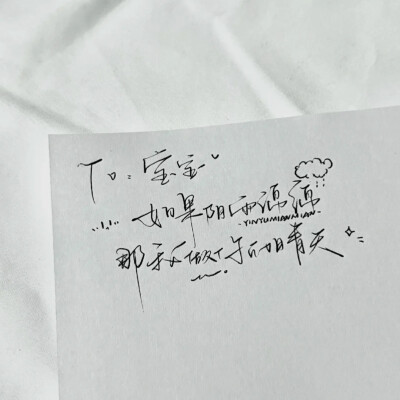 To：宝宝
如果阴雨绵绵
YINYUMIANMIAN
那我做你的晴天